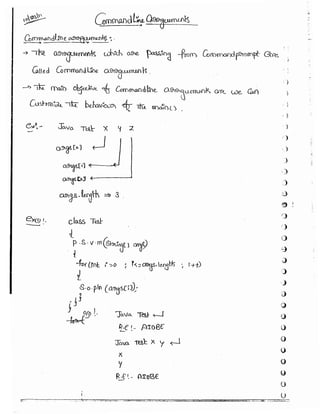 Command Line Arguments
Command line arguments :-
→ The arguments which are passing from Command prompt are
Called Command Line arguments.
→ The main objective of Command line arguments are we can
Customize the behaviour of the main().
Ex:- Java Test X Y Z
args[0]
args[1]
args[2]
args.length ⇒ 3
Ex :- class Test
{
p.s.v.m(String[] args)
{
for(int i=0 ; i<=args.length ; i++)
{
S.o.pln (args[i]);
}
}
}
Java Test ↵
R.E :- AIOBE
Java Test X Y ↵
X
Y
R.E :- AIOBE